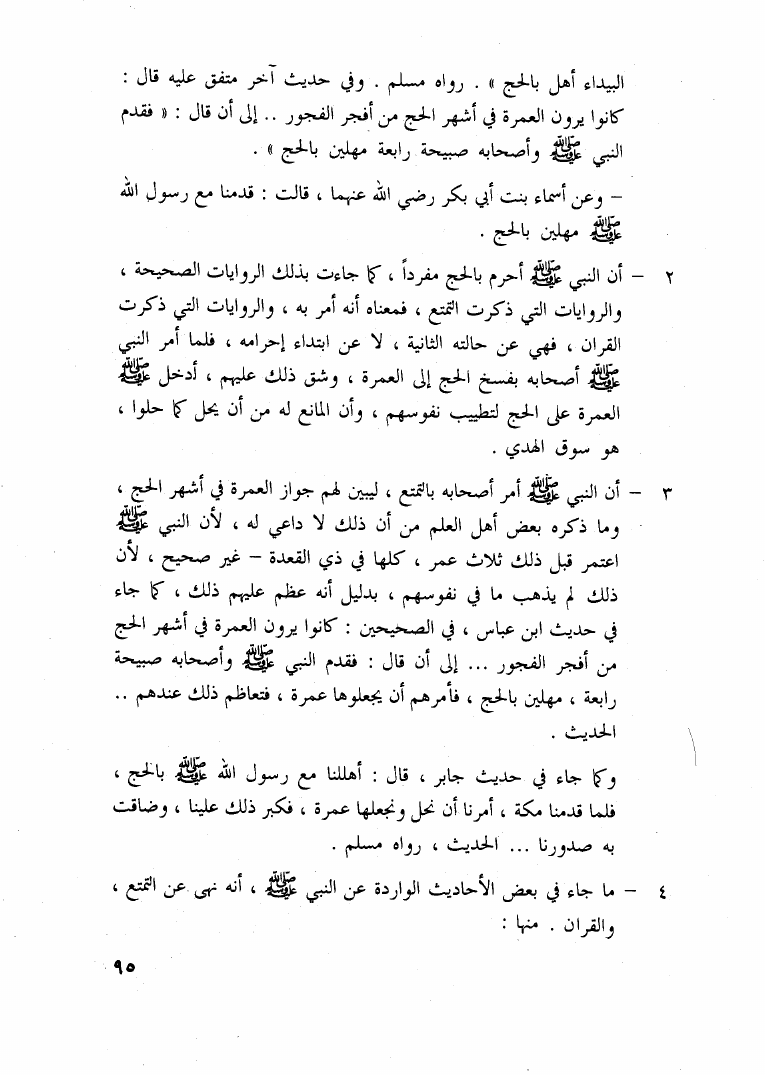 البيداء أهل بالحج » . رواه مسلم . وفي حديث آخر متفق عليه قال :
كانوا يرون العمرة في أشهر الحج من أفجر الفجور .. إلى أن قال : « فقدم
النبي ﷺ وأصحابه صبيحة رابعة مهلين بالحج » .
– وعن أسماء بنت أبي بكر رضي الله عنهما ، قالت : قدمنا مع رسول الله
ﷺ مهلين بالحج .
٢ – أن النبي ﷺ أحرم بالحج مفرداً ، كما جاءت بذلك الروايات الصحيحة ،
والروايات التي ذكرت التمتع ، فمعناه أنه أمر به ، والروايات التي ذكرت
القران ، فهي عن حالته الثانية ، لا عن ابتداء إحرامه ، فلما أمر النبي
ﷺ أصحابه بفسخ الحج إلى العمرة ، وشق ذلك عليهم ، أدخل ﷺ
العمرة على الحج لتطييب نفوسهم ، وأن المانع له من أن يحل كما حلوا ،
هو سوق الهدي .
٣ – أن النبي ﷺ أمر أصحابه بالتمتع ، ليبين لهم جواز العمرة في أشهر الحج ،
وما ذكره بعض أهل العلم من أن ذلك لا داعي له ، لأن النبي ﷺ
اعتمر قبل ذلك ثلاث عمر ، كلها في ذي القعدة – غير صحيح ، لأن
ذلك لم يذهب ما في نفوسهم ، بدليل أنه عظم عليهم ذلك ، كما جاء
في حديث ابن عباس ، في الصحيحين : كانوا يرون العمرة في أشهر الحج
من أفجر الفجور ... إلى أن قال : فقدم النبي ﷺ وأصحابه صبيحة
رابعة ، مهلين بالحج ، فأمرهم أن يجعلوها عمرة ، فتعاظم ذلك عندهم ..
الحديث .
وكما جاء في حديث جابر ، قال : أهللنا مع رسول الله ﷺ بالحج ،
فلما قدمنا مكة ، أمرنا أن نحل ونجعلها عمرة ، فكبر ذلك علينا ، وضاقت
به صدورنا ... الحديث ، رواه مسلم .
٤ – ما جاء في بعض الأحاديث الواردة عن النبي ﷺ ، أنه نهى عن التمتع ،
والقران . منها :
٩٥